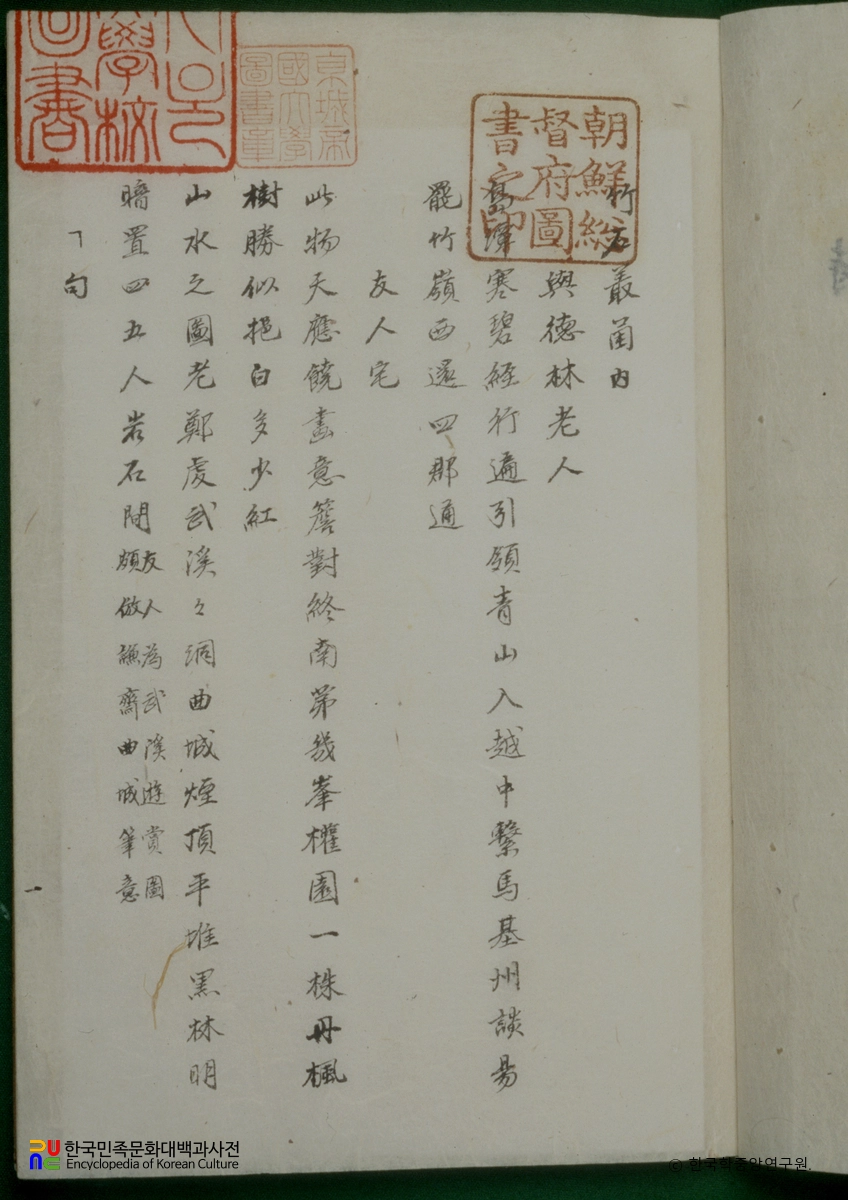 朝鮮総
督府圖
書之印
京城帝
國大學
圖書章
學校
圖書
叢 內
與德林老人
島潭寒碧經行遍引領青山入越中繫馬基州談易
罷竹嶺西還四郡通
友人宅
此物天應饒畫意簷對終南第幾峯權園一株丹楓
樹勝似挹白多少紅
山水之圖老鄭虔武溪々洞曲城煙頂平堆黑林明
暗置四五人岩石間友人為武溪遊賞圖
頗倣謙齋曲城筆意
ㄱ句
一
한국민족문화대백과사전
Encyclopedia of Korean Culture
© 한국학중앙연구원